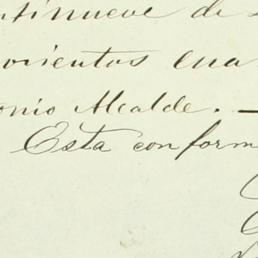 ntinueve de
ovientos cua
onio Alcalde.
Esta conform